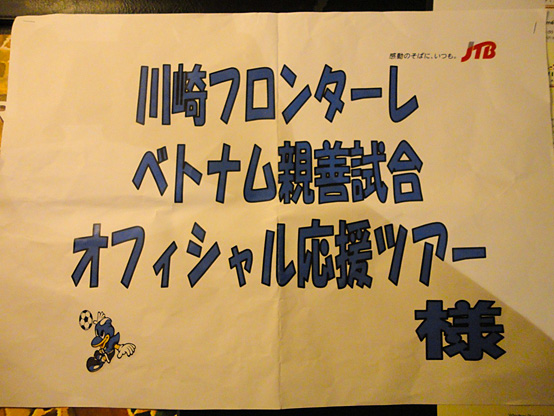 感動のそばに、いつも。 JTB
川崎フロンターレ
ベトナム親善試合
オフィシャル応援ツアー
様